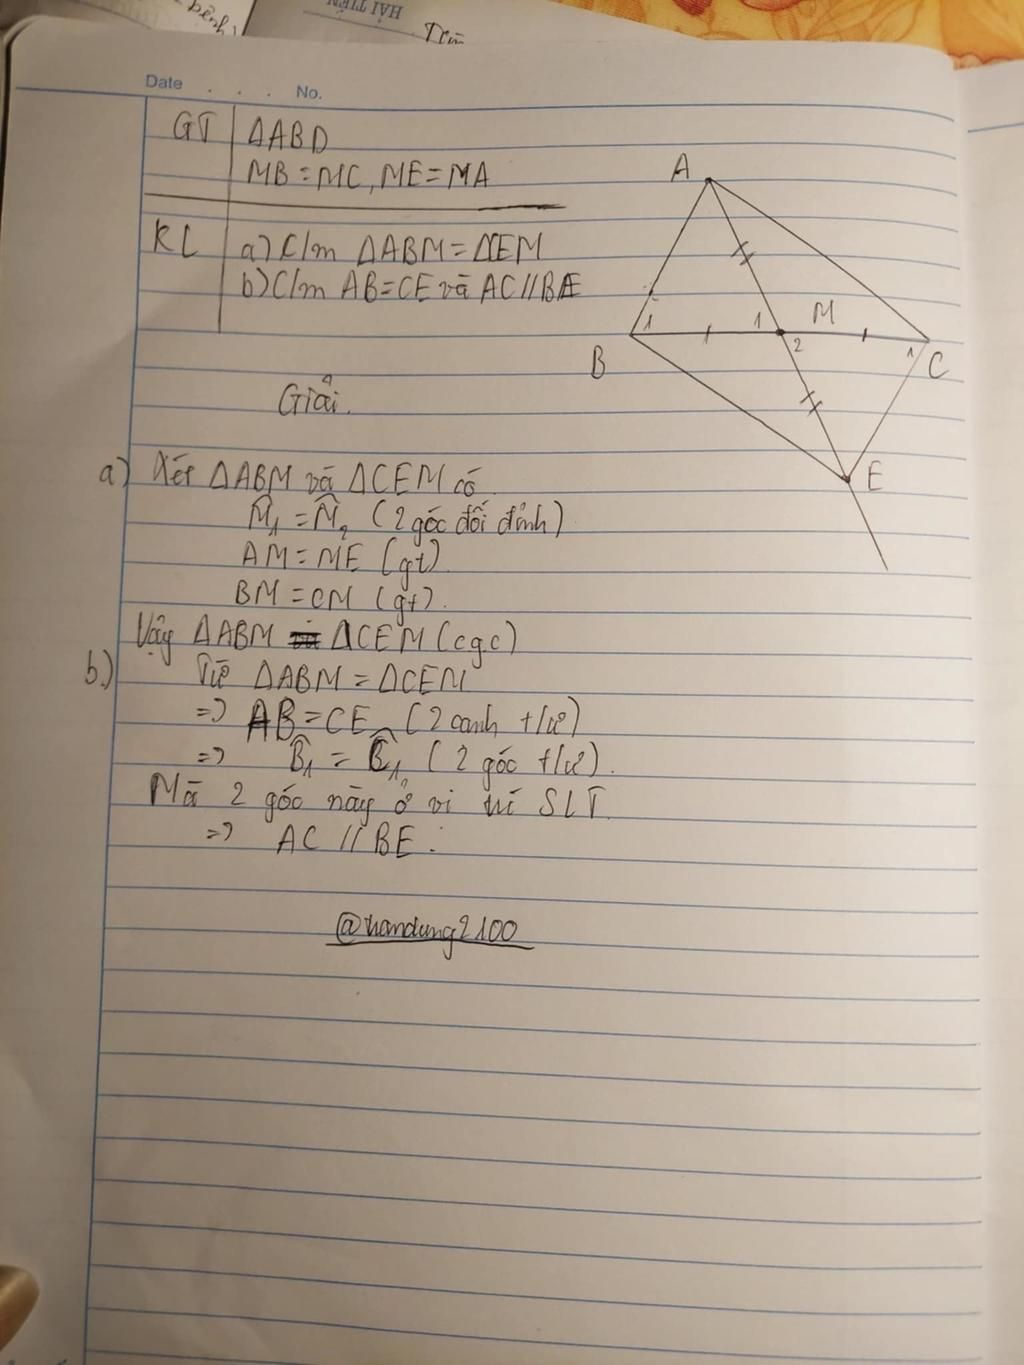 bệnh
HẢI TIẾN
Date . . . No.
GT ΔABD
MB = MC, ME = MA
KL a) C/m ΔABM = ΔCEM
b) C/m AB = CE và AC // BE
A
M
1
1
2
1
B
C
E
Giải.
a) Xét ΔABM và ΔCEM có
M̂₁ = M̂₂ (2 góc đối đỉnh)
AM = ME (gt)
BM = CM (gt).
Vậy ΔABM = ΔCEM (cgc)
b.) Từ ΔABM = ΔCEM
=> AB = CE (2 cạnh t/ư)
=> B̂₁ = Ĉ₁ (2 góc t/ư).
Mà 2 góc này ở vị trí SLT.
=> AC // BE.